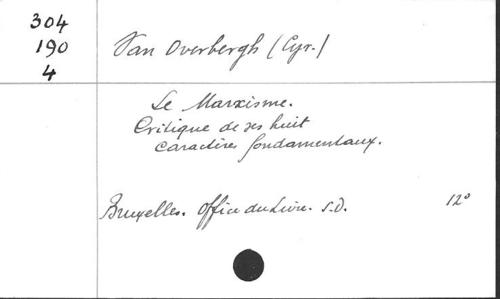 304
190
4
Van Overbergh (Cyr.)
Le Marxisme.
Critique de ses huit
caractères fondamentaux.
Bruxelles. Office du Livre. S.D. 12°